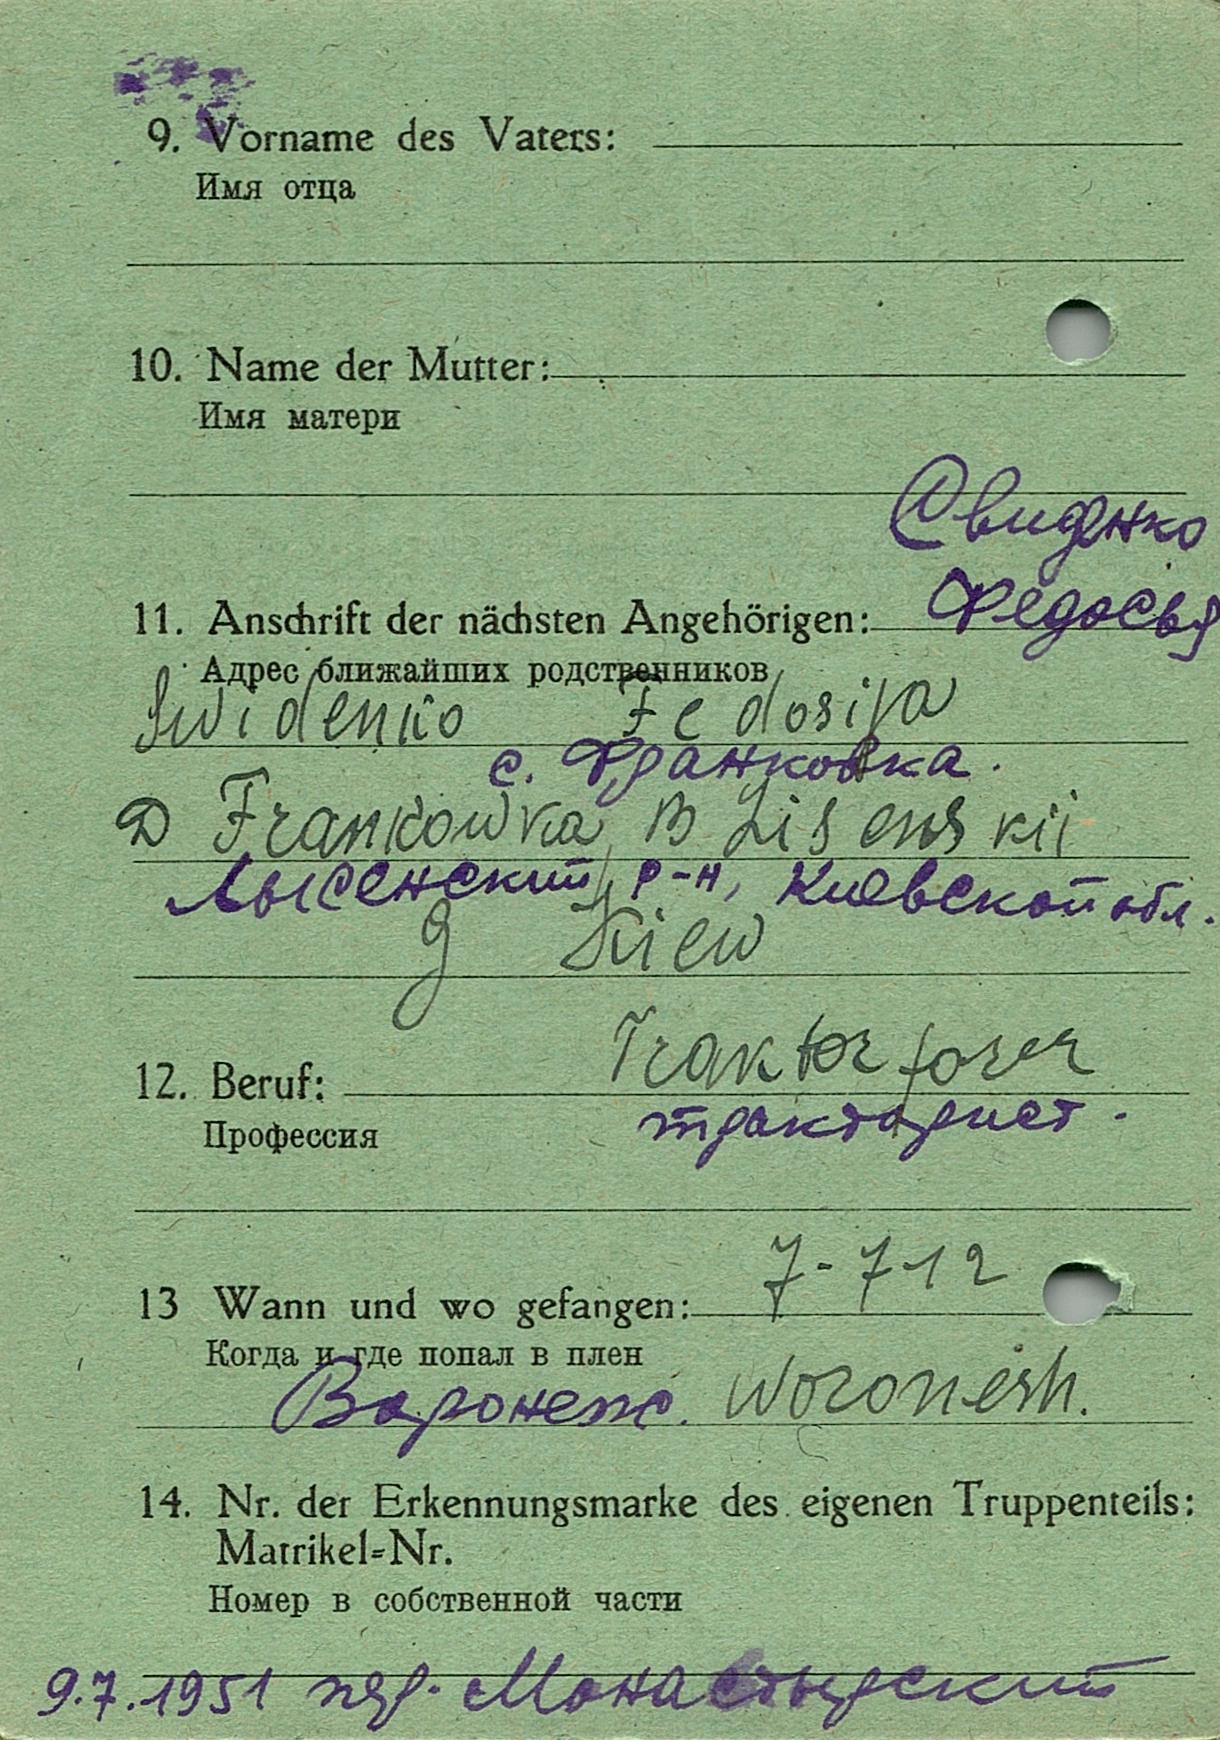 9. Vorname des Vaters:
Имя отца
10. Name der Mutter:
Имя матери
Свиденко
11. Anschrift der nächsten Angehörigen: Федосья
Адрес ближайших родственников
Swidenko Fedosija
с. Франковка.
D Frankowka, B Lisenskii
Лысенский р-н, Киевской обл.
g Kiew
Traktor forer
12. Beruf:
тракторист.
Профессия
7-7 12
13 Wann und wo gefangen:
Когда и где попал в плен
Воронеж. Woronesh.
14. Nr. der Erkennungsmarke des eigenen Truppenteils:
Matrikel=Nr.
Номер в собственной части
9.7.1951 пер. Монастырский